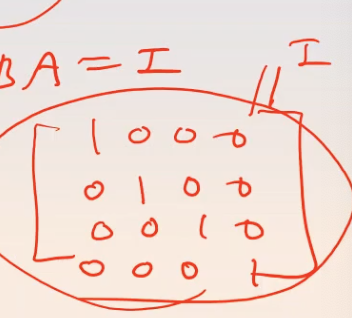 BA = I
|| I
1 0 0 0
0 1 0 0
0 0 1 0
0 0 0 1